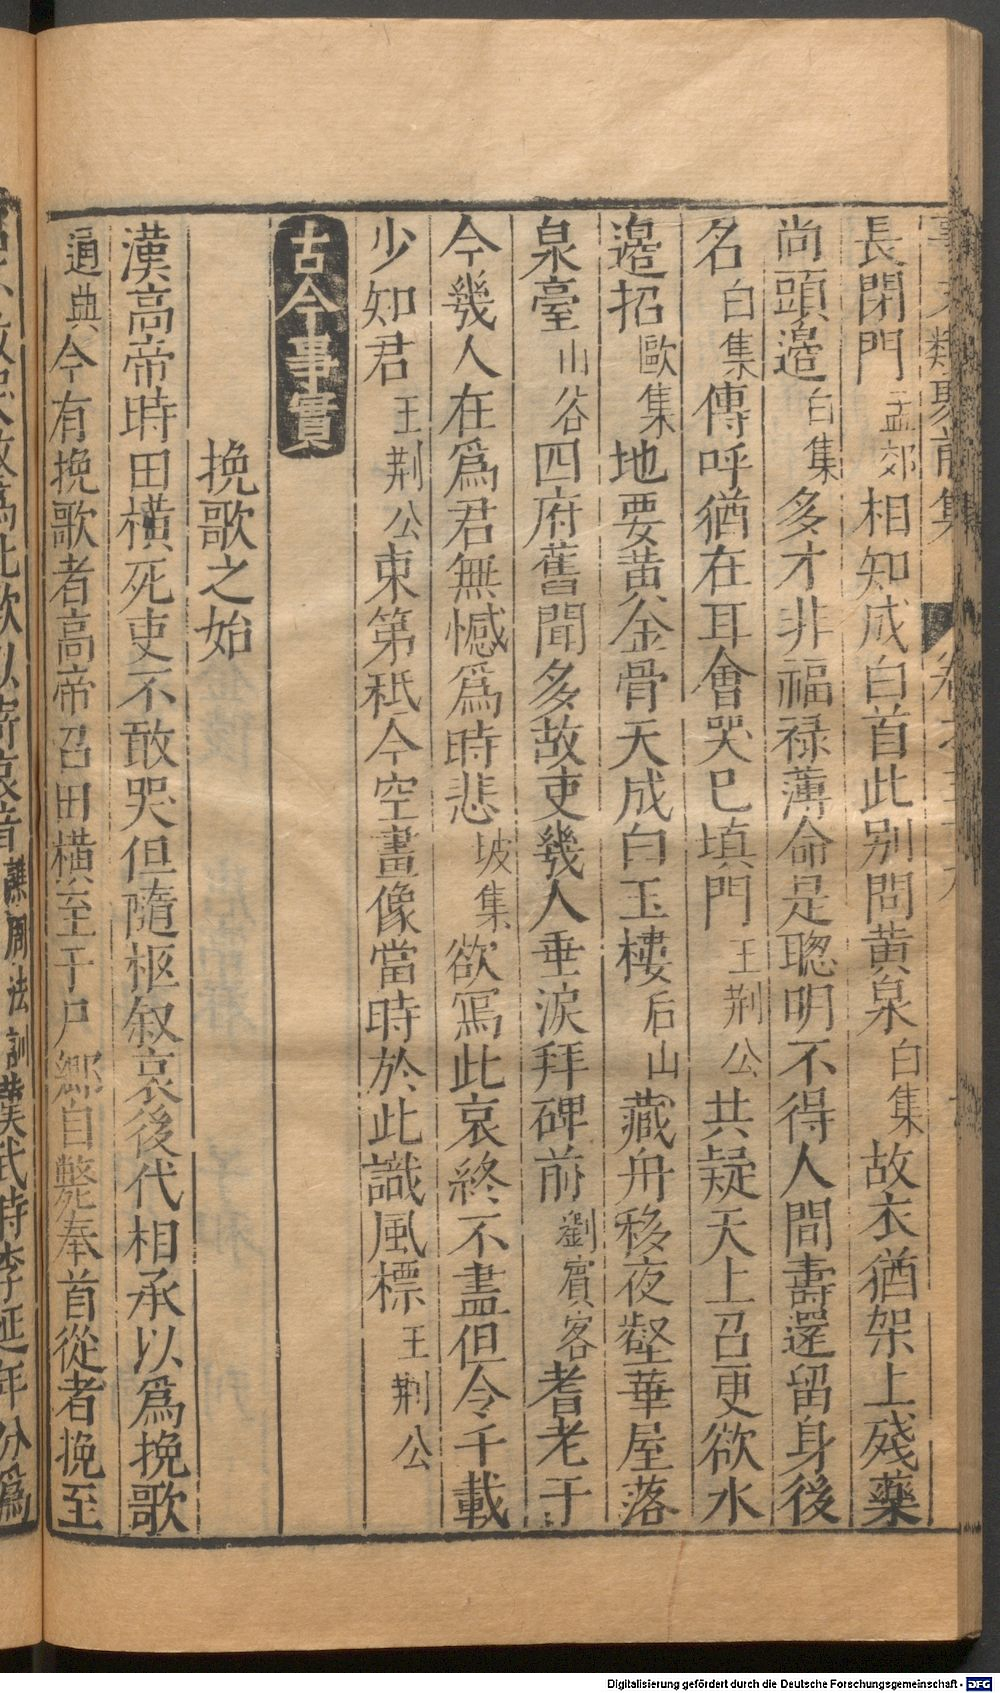 長閉門孟郊相知成白首此别問黄泉白集故衣猶架上殘藥
尚頭邉白集多才非福禄薄命是聦明不得人間壽還留身後
名白集傳呼猶在耳會哭已填門王荆公共疑天上召更欲水
邉招歐集地要黄金骨天成白玉樓后山藏舟移夜壑華屋落
泉臺山谷四府舊聞多故吏幾人垂淚拜碑前劉賓客耆老于
今幾人在爲君無憾爲時悲坡集欲寫此哀終不盡但令千載
少知君王荆公東第秖今空畫像當時於此識風標王荆公
古今事實
挽歌之始
漢高帝時田横死吏不敢哭但隨柩叙哀後代相承以爲挽歌
通典今有挽歌者高帝召田横至于尸鄉自斃奉首從者挽至
譙周法訓漢武時李延年分爲
Digitalisierung gefördert durch die Deutsche Forschungsgemeinschaft - DFG